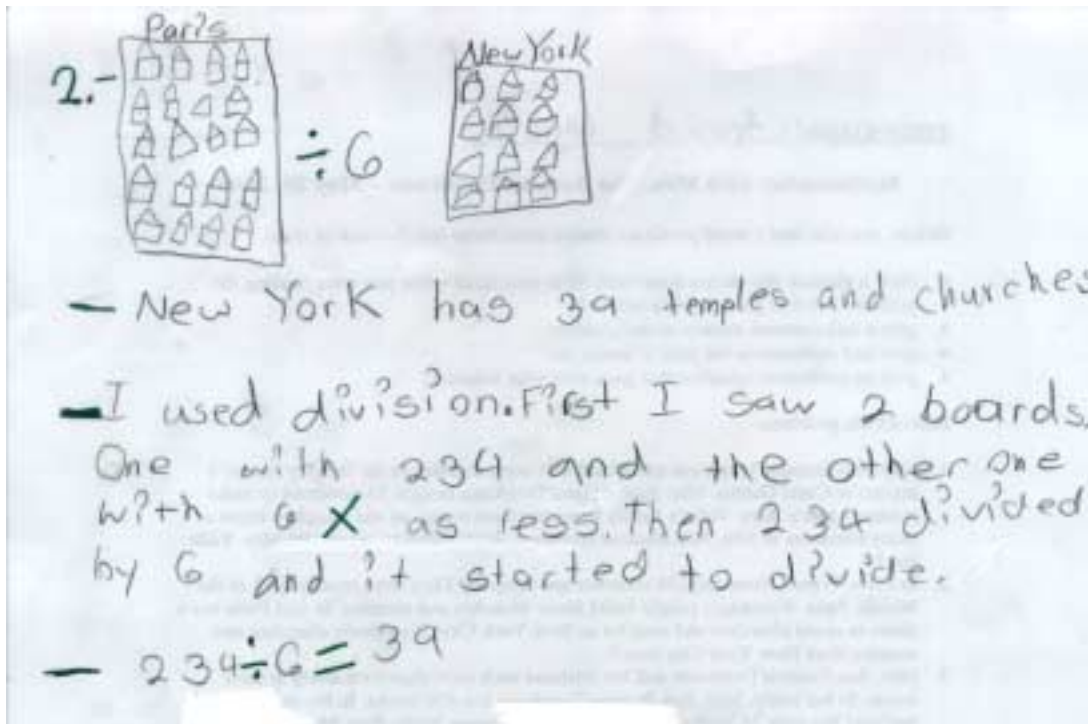 Paris
New York
2.-
÷ 6
- New York has 39 temples and churches
- I used division. First I saw 2 boards.
One with 234 and the other one
with 6 X as less. Then 234 divided
by 6 and it started to divide.
- 234÷6=39